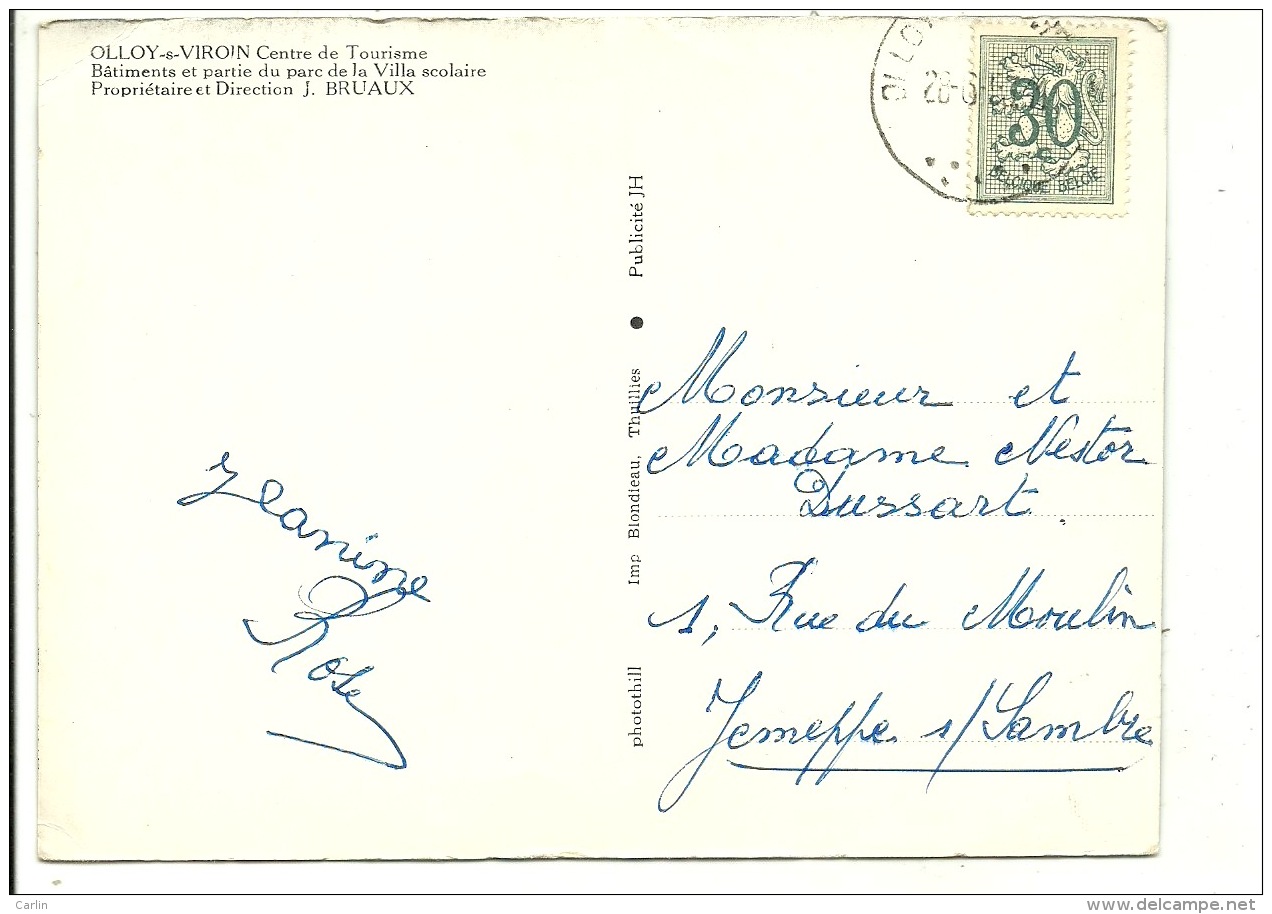 OLLOY-s-VIROIN Centre de Tourisme
Bâtiments et partie du parc de la Villa scolaire
Propriétaire et Direction J. BRUAUX
OLLOY
28-6
30
BELGIQUE BELGIË
Publicité JH
Imp Blondieau, Thuillies
photothill
Jeanine
Rose
Monsieur et
Madame Nestor
Dussart
1, Rue du Moulin
Jemeppe s/Sambre
Carlin
www.delcampe.net